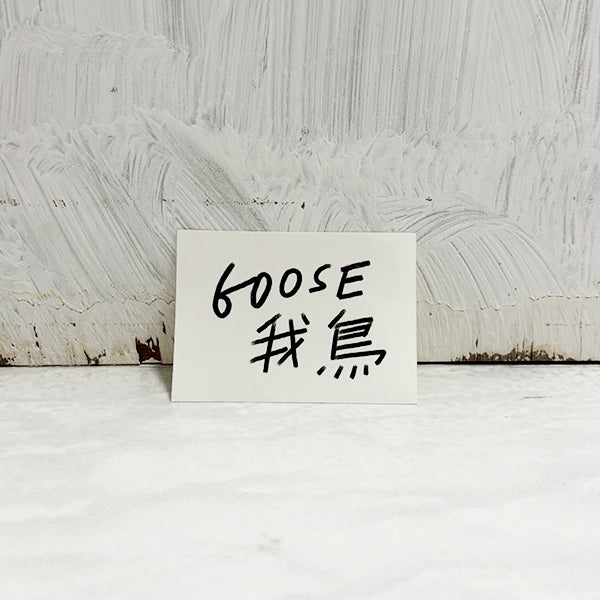 GOOSE
我鳥